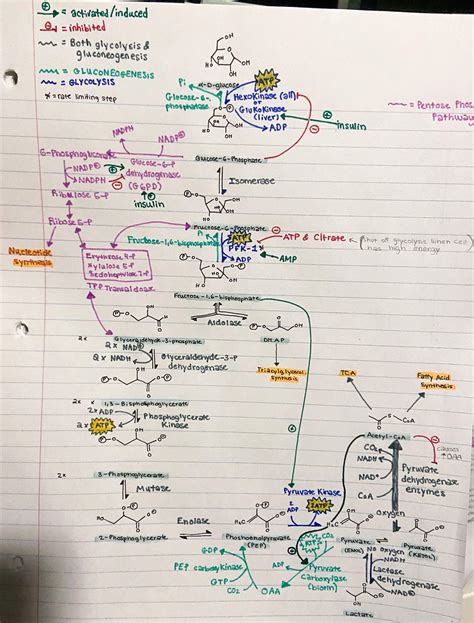 ⊕ = activated/induced
⊖ = inhibited
= Both glycolysis &
gluconeogenesis
= GLUCONEOGENESIS
= GLYCOLYSIS
* = rate limiting step
α-D-glucose
Pi
Glucose-6-
phosphatase
ATP
Hexokinase (all)
or
Glukokinase
(liver)
ADP
insulin
Pentose Phos
Pathway
NADPH
NADP⊕
6-Phosphogluconate
Glucose-6-P
dehydrogenase
(G6PD)
NADP⊕
NADPH
insulin
Glucose-6-Phosphate
Isomerase
Ribulose 5-P
Ribose 5-P
Nucleotide
Synthesis
Erythrose 4-P
Xylulose 5-P
Sedoheptulose 7-P
TPP Transaldolase
Fructose-6-Phosphate
Pi
Fructose-1,6-bisphosphatase
ATP
PFK-1*
ADP
ATP & Citrate
AMP
has high energy
Fructose-1,6-bisphosphate
Aldolase
Glyceraldehyde-3-phosphate
DHAP
Triacylglycerol
Synthesis
2x
2x NAD⊕
2x NADH
Glyceraldehyde-3-P
dehydrogenase
2x
1,3-Bisphosphoglycerate
2x ADP
2x ATP
Phosphoglycerate
Kinase
TCA
Fatty Acid
Synthesis
Acetyl-CoA
CO₂
NADH
NAD⁺
CoA
Pyruvate
dehydrogenase
enzymes
2x
3-Phosphoglycerate
Mutase
2-Phosphoglycerate
Enolase
Phosphoenolpyruvate
(PEP)
Pyruvate Kinase
2
ADP
2ATP
Oxygen
Pyruvate
(ENOL)
Pyruvate
(KETONE)
NO Oxygen
NADH
NAD⊕
Lactase
dehydrogenase
Lactate
GDP
PEP carboxykinase
GTP
CO₂
OAA
ADP
Pyruvate
carboxylase
(biotin)